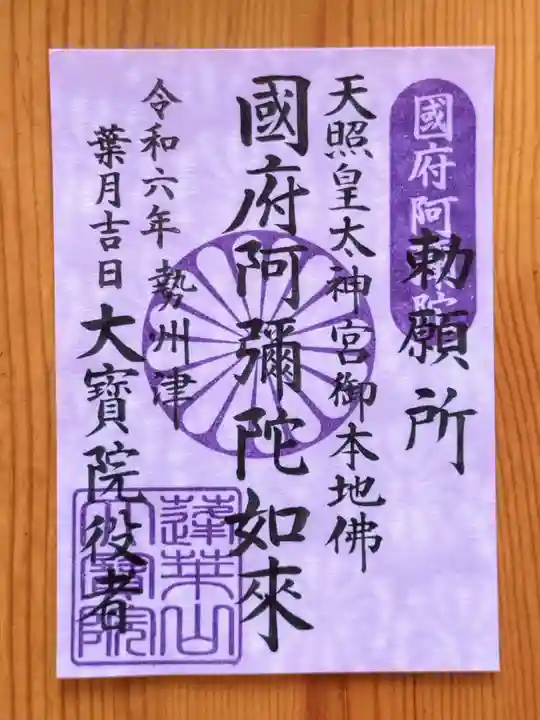 國府阿弥陀
勅願所
天照皇太神宮御本地佛
國府阿彌陀如來
勢州津
令和六年
葉月吉日
大寶院役者
蓮華山
大寶院